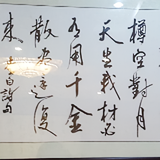 樽空對月
天生我材必
有用千金
散盡還復
來 白詩句